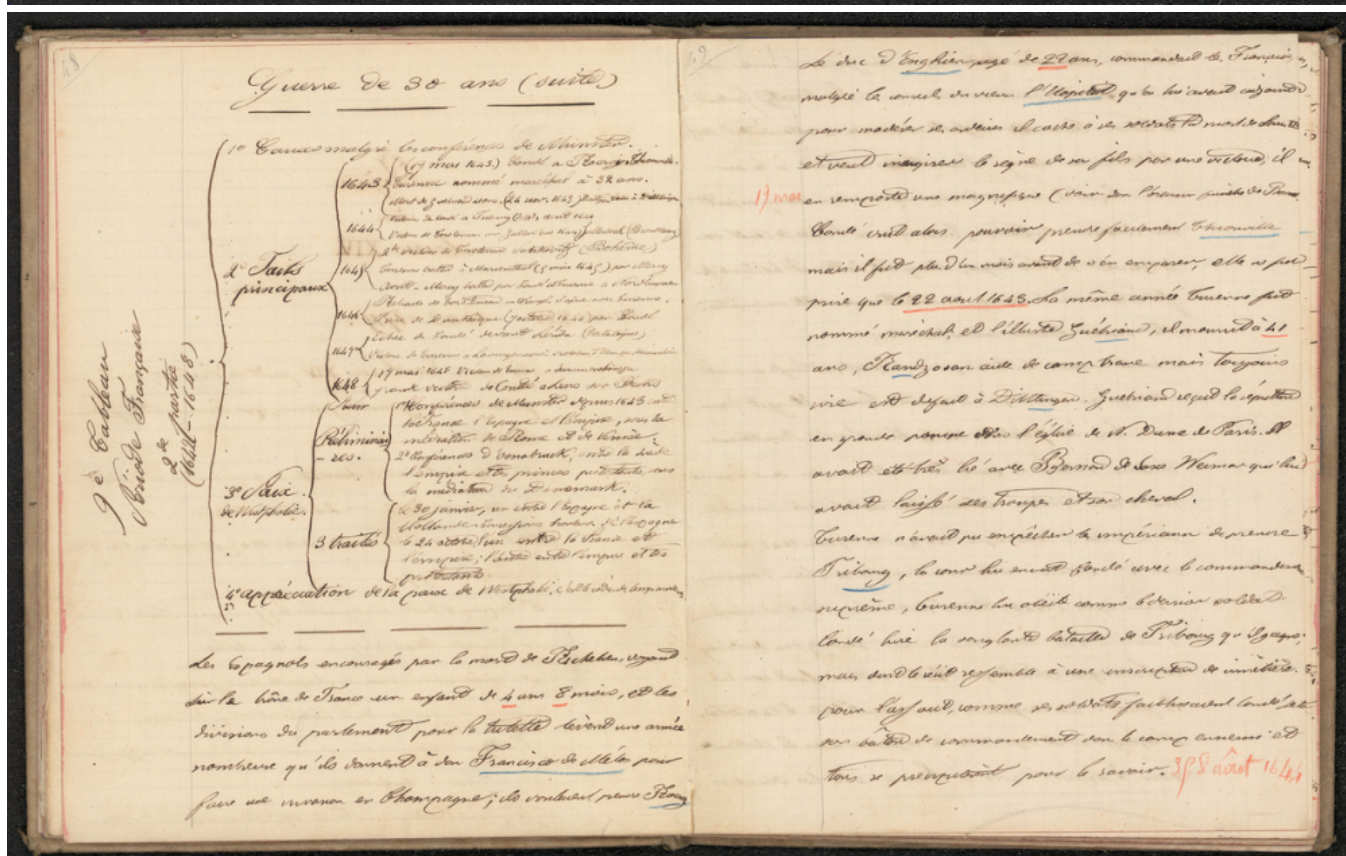 48
Guerre de 30 ans (suite)
9e Tableau
Période Française
2de partie
(1642-1648)
1o Causes malgré les conférences de Munster.
2o Faits principaux
1643
(19 mai 1643) Condé à Rocroi. Thionville.
Turenne nommé maréchal à 32 ans.
Mort de Guébriant (24 nov. 1643)
1644
Victoire de
2de victoire de (Bohême)
1645
Turenne battu à Marienthal (5 mai 1645) par Mercy
août - Mercy battu par Condé et Turenne à Nordlingen
1646
Prise de Dunkerque (octobre 1646) par Condé
1647
Échec de Condé devant Lérida (Catalogne)
1648
17 mai 1648 Victoire de Turenne
grande victoire de Condé à Lens
3o Paix de Westphalie.
Préliminai-res.
1o Conférences de Munster depuis 1643 entre
la France l'Espagne et l'Empire, sous la
médiation de Rome et de Venise;
2o Conférences d'Osnabruck, entre la Suède
l'empire et les princes protestants, sous
la médiation du Danemark.
3 traités
le 30 janvier, un entre l'Espagne et la
Hollande
le 24 octobre, l'un entre la France et
l'empire; l'autre entre l'empire et les
protestants
4o appréciation de la paix de Westphalie.
Les Espagnols encouragés par la mort de Richelieu, voyant
sur le trône de France un enfant de 4 ans 8 mois, et les
divisions du parlement pour la tutelle lèvent une armée
nombreuse qu'ils donnent à don Francisco de Mélos pour
faire une invasion en Champagne; ils voulaient prendre Rocroy
49
Le duc d'Enghien, agé de 22 ans, commandait les Français,
malgré le conseil du vieux l'Hopital qu'on lui avait adjoint
pour modérer ses ardeurs il cache à ses soldats la mort de Louis XIII
et veut inaugurer le règne de son fils par une victoire; il
19 mai
en remporte une magnifique (voir dans l'oraison funèbre de
Condé crut alors pouvoir prendre facilement Thionville
mais il fut plus d'un mois avant de s'en emparer, elle ne fut
prise que le 22 aout 1643. La même année Turenne fut
nommé maréchal, et l'illustre Guébriant, il mourut à 41
ans, Randzo son aide de camp brave mais toujours
ivre est défait à Dittlingen. Guébriant reçut la sépulture
en grande pompe dans l'église de N. Dame de Paris. Il
avait été très lié avec Bernard de Saxe Weimar qui lui
avait laissé ses troupes et son cheval.
Turenne n'avait pu empêcher les impériaux de prendre
Fribourg, la cour lui envoie Condé avec le commandement
suprême, Turenne lui obéit comme le dernier soldat
Condé livre la sanglante bataille de Fribourg qu'il gagne,
mais dont le récit ressemble à une inscription de cimetière.
pour l'assaut, comme ses soldats faiblissaient Condé jette
son bâton de commandement dans le camp ennemi et
tous se précipitent pour le ravoir. 3, 5, 8 août 1644